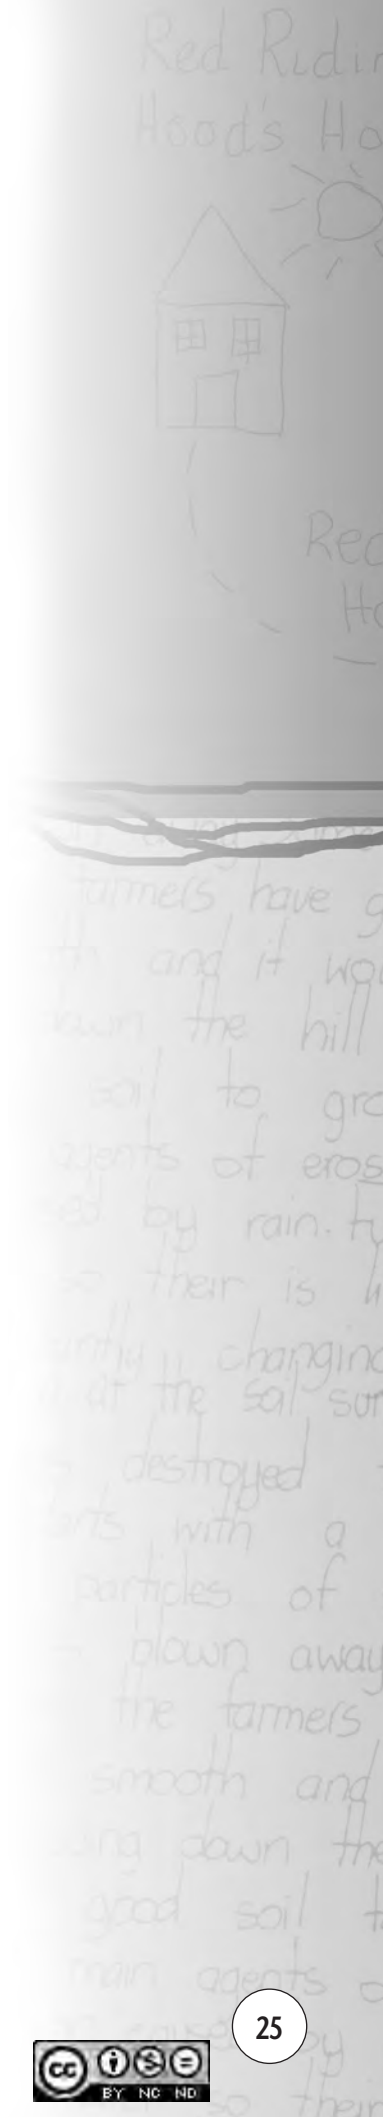 Red Ridin
Hood's Ho
Red
Ho
farmers have g
and it wou
down the hill
soil to gro
agents of eros
by rain. ty
so their is li
changing
at the soil sur
destroyed
with a
particles of
blown away
the farmers
smooth and
down the
good soil t
main agents o
25
by
cc
BY NC ND
so their